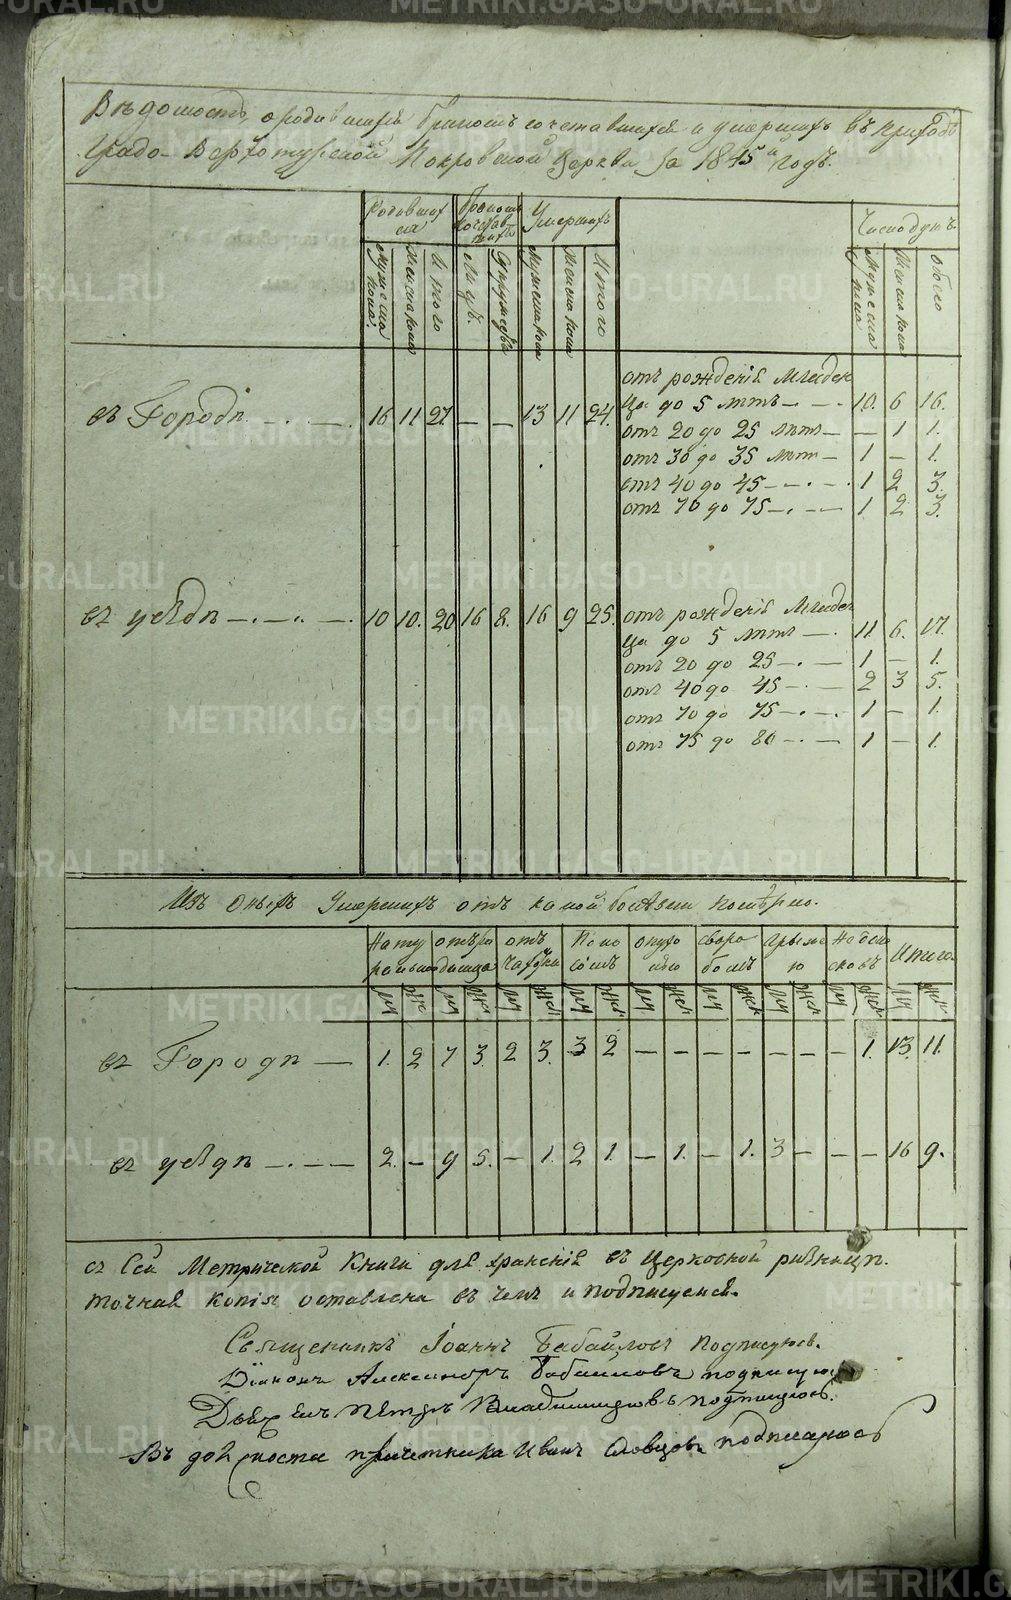 METRIKI.GASO-URAL.RU
Вѣдомость, о родившихся бракомъ сочетавшихся и умершихъ въ приходѣ
Градо-Верхотурской Покровской Церкви за 1845й годъ.
Родившихся
Бракомъ сочетавшихъ
Умершихъ
Число душъ
Мужеска пола
Женска пола
Итого
Лицъ
Супружествъ
Мужеска пола
Женска пола
Итого
Мужеска пола
Женска пола
Обоего
въ Городѣ 16 11 27 — — 13 11 24.
отъ рожденія Младен
ца до 5 лѣтъ — 10. 6 16.
отъ 20 до 25 лѣтъ — — 1 1.
отъ 30 до 35 лѣтъ — 1 — 1.
отъ 40 до 45 — 1 2 3.
отъ 70 до 75 — 1 2 3.
въ уѣздѣ — 10 10. 20 16 8. 16 9 25.
отъ рожденія Младен
ца до 5 лѣтъ — 11 6. 17.
отъ 20 до 25 — 1 — 1.
отъ 40 до 45 — 2 3 5.
отъ 70 до 75 — 1 — 1.
отъ 75 до 80 — 1 — 1.
Изъ оныхъ Умершихъ отъ какой болѣзни
отъ родимца
отъ чахотки
Поносомъ
опухолью
грыжею
Итого
въ Городѣ — 1. 2 7 3. 2 3. 3 2 — — — — — — — 1. 13. 11.
въ уѣздѣ — 2. — 9 5. — 1. 2 1. — 1. — 1. 3 — — — 16 9.
съ Сей Метрической Книги для храненія въ Церковной ризницѣ.
точная копія оставлена въ чемъ и подписуемся.
Священникъ Іоаннъ Бабайловъ подписуюсь.
Діаконъ Александръ Бабайловъ подписуюсь
Дьячекъ Петръ подписуюсь.
Въ должности причетника Иванъ Словцовъ подписуюсь